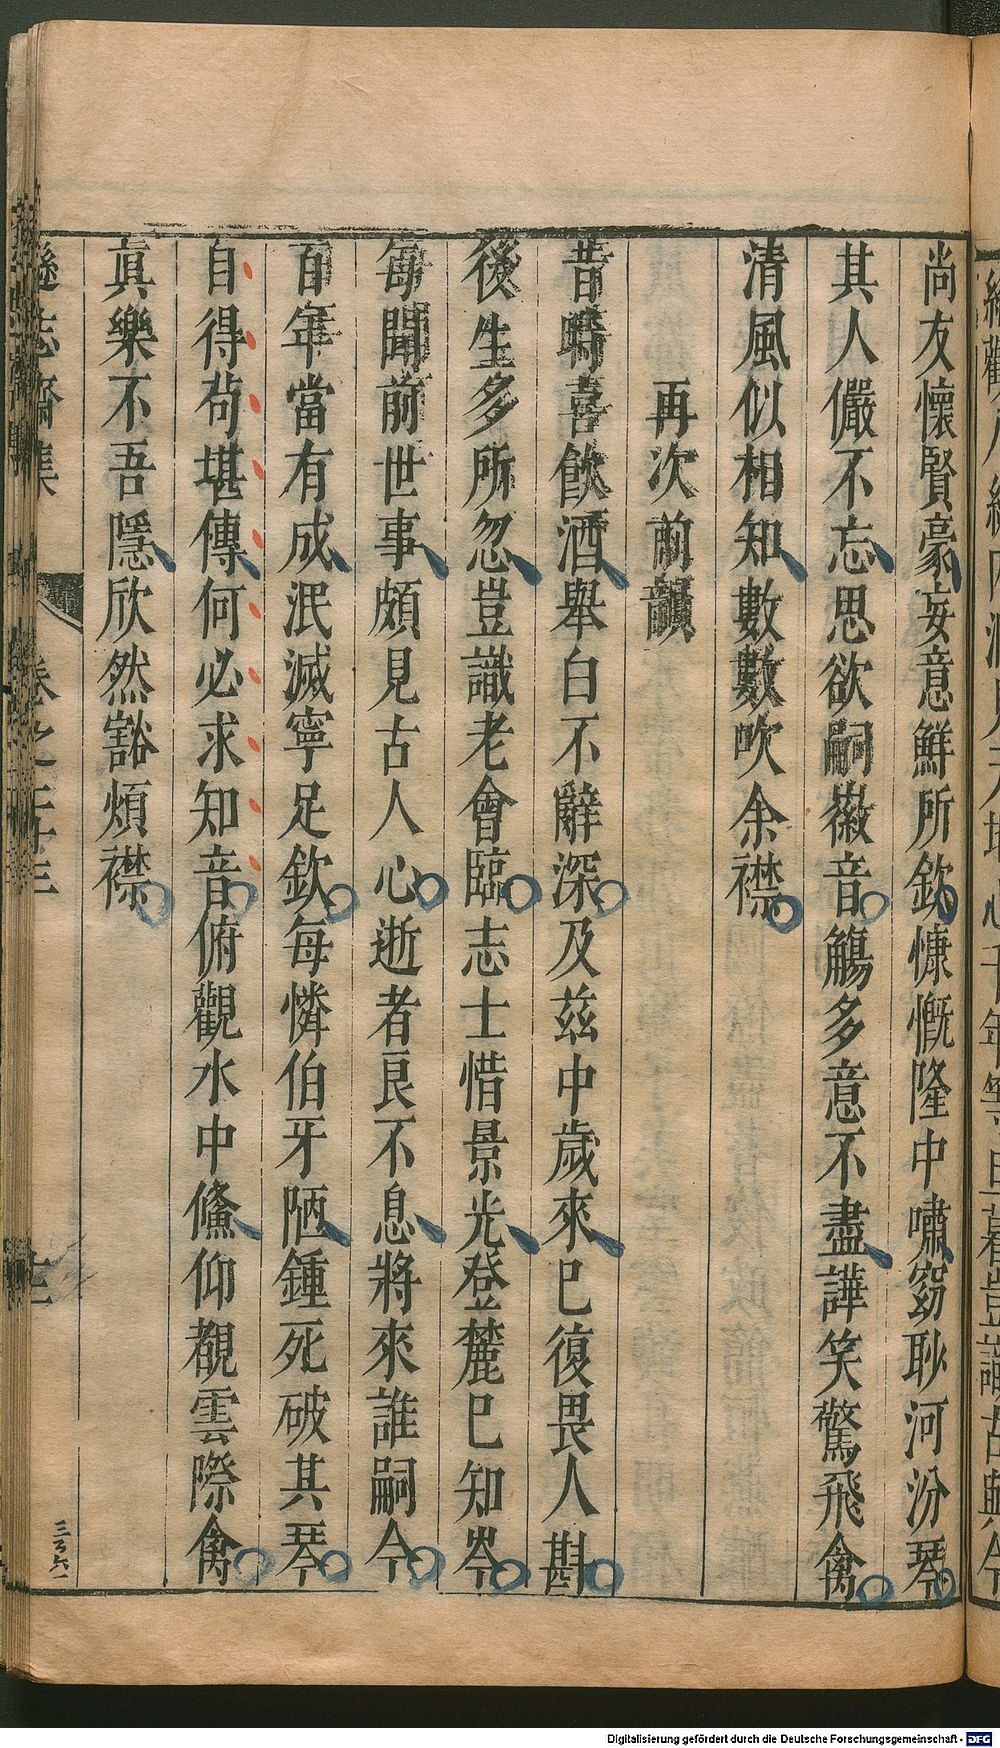 尚友懷賢豪妄意鮮所欽慷慨隆中嘯窈耿河汾琴
其人儼不忘思欲嗣徽音觴多意不盡譁笑驚飛禽
清風似相知數數吹余襟
再次前韻
昔疇喜飲酒舉白不辭深及茲中歲來已復畏人斟
後生多所忽豈識老會臨志士惜景光登麓已知岑
每聞前世事頗見古人心逝者良不息將來誰嗣今
百年當有成泯滅寧足欽每憐伯牙陋鍾死破其琴
自得苟堪傳何必求知音俯觀水中鯈仰覩雲際禽
眞樂不吾隱欣然豁煩襟
遜志齋集
卷之二十三
三百六一
Digitalisierung gefördert durch die Deutsche Forschungsgemeinschaft - DFG